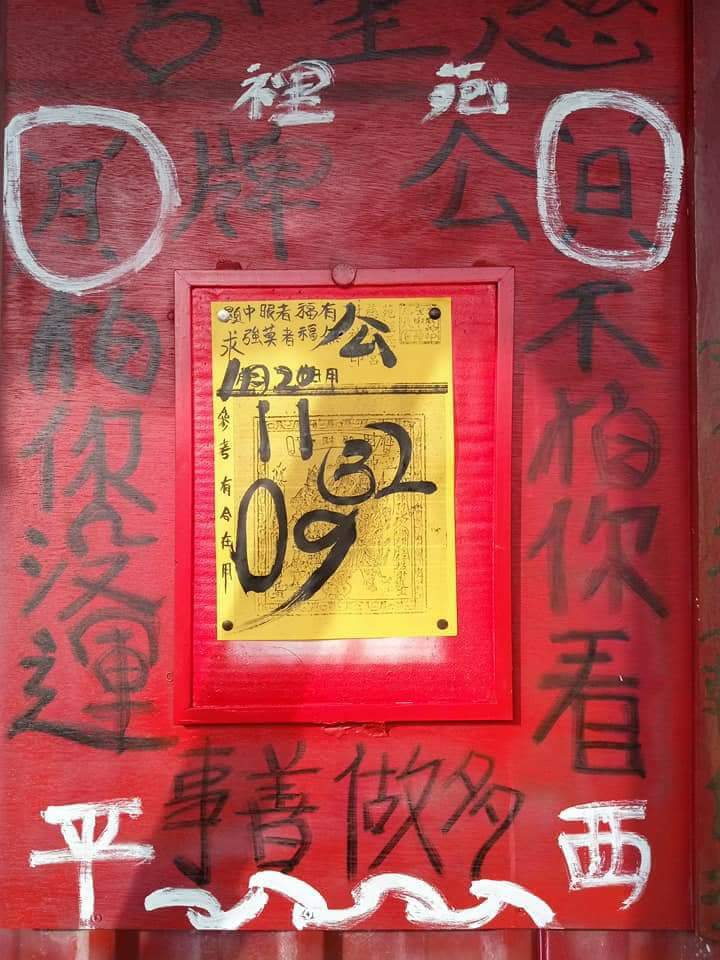 慈聖宮
苑裡
公牌
日
不怕你看
月
怕你沒運
有福者眼中顯
福者莫強求
公
1月20日用
11
32
09
參考 有合在用
多做善事
西平